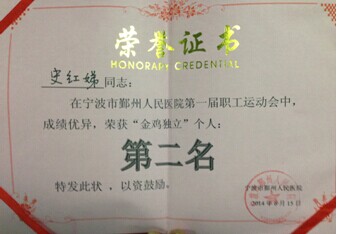 荣誉证书
HONORARY CREDENTIAL
史红娣同志：
在宁波市鄞州人民医院第一届职工运动会中，
成绩优异，荣获“金鸡独立”个人：
第二名
特发此状，以资鼓励。
宁波市鄞州人民医院